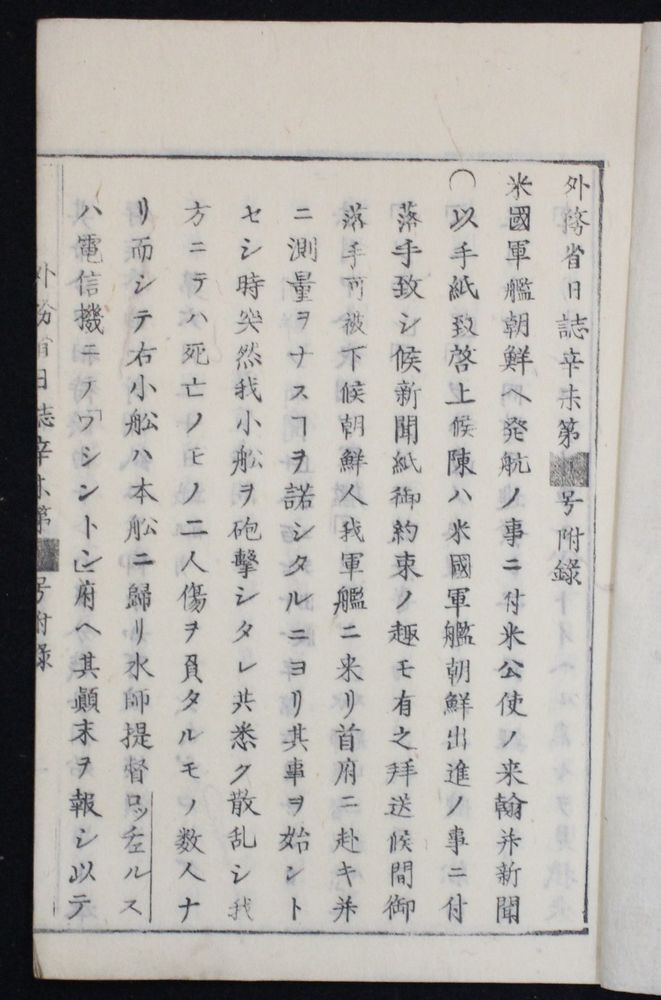 外務省日誌辛未第 号附錄
米國軍艦朝鮮ヘ発航ノ事ニ付米公使ノ来翰并新聞
〇以手紙致啓上候陳ハ米國軍艦朝鮮出進ノ事ニ付
落手致シ候新聞紙御約束ノ趣モ有之拜送候間御
落手可被下候朝鮮人我軍艦ニ来リ首府ニ赴キ并
ニ測量ヲナスヿヲ諾シタルニヨリ其事ヲ始ント
セシ時突然我小舩ヲ砲擊シタレ共悉ク散乱シ我
方ニテハ死亡ノモノ二人傷ヲ負タルモノ数人ナ
リ而シテ右小舩ハ本舩ニ歸リ水師提督ロッチェルス
ハ電信機ニテワシントン府ヘ其顚末ヲ報シ以テ
外務省日誌辛未第 号附錄